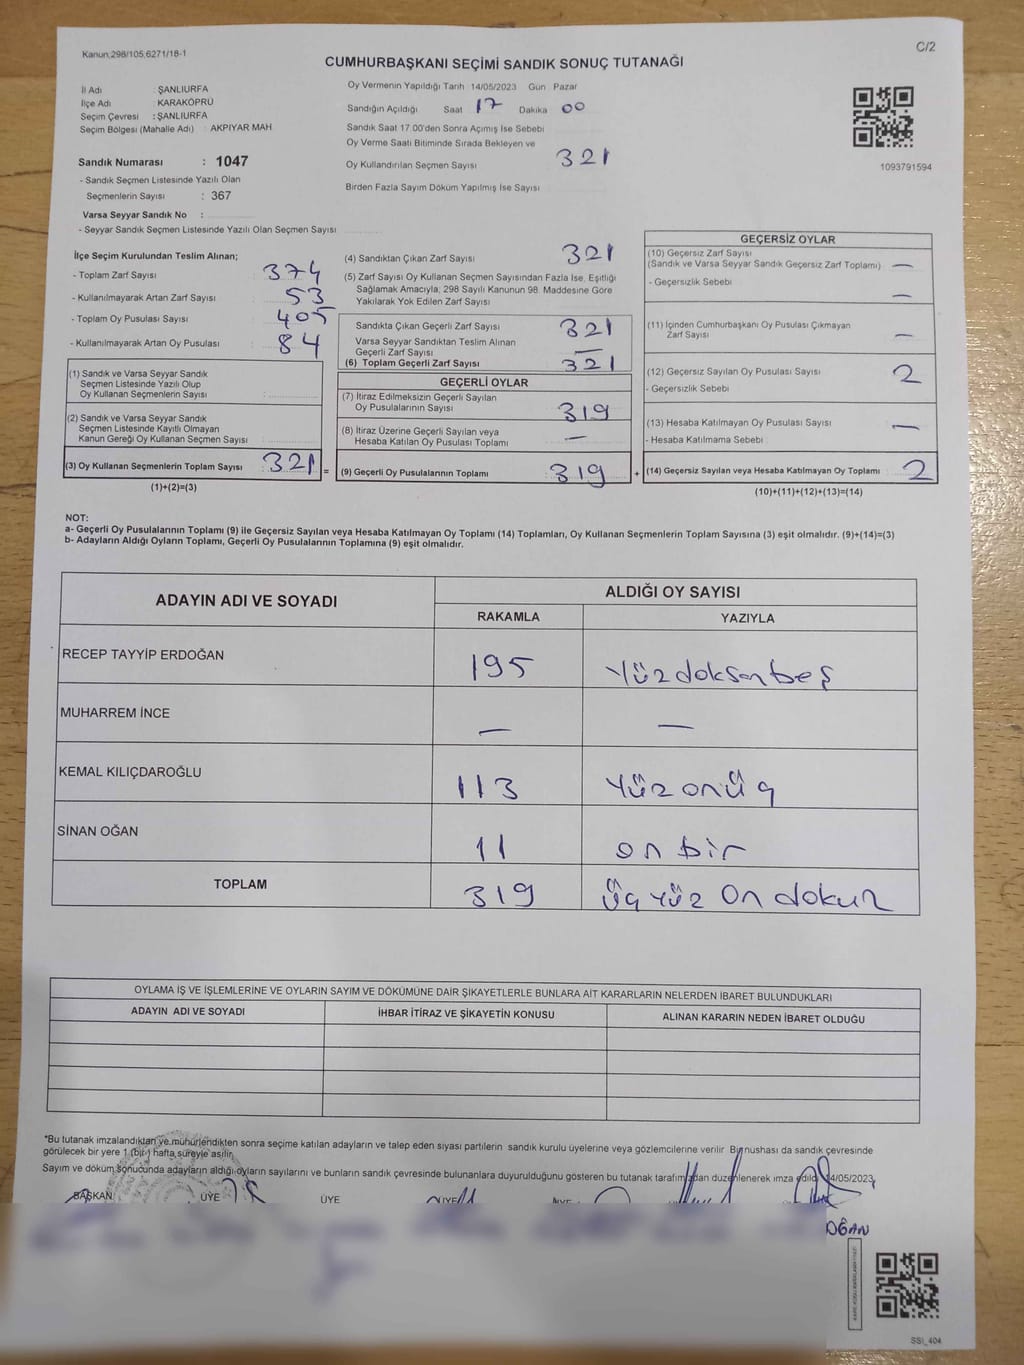 Kanun:298/105,6271/18-1
C/2
CUMHURBAŞKANI SEÇİMİ SANDIK SONUÇ TUTANAĞI
İl Adı : ŞANLIURFA
İlçe Adı : KARAKÖPRÜ
Seçim Çevresi : ŞANLIURFA
Seçim Bölgesi (Mahalle Adı) : AKPIYAR MAH
Sandık Numarası : 1047
- Sandık Seçmen Listesinde Yazılı Olan
Seçmenlerin Sayısı : 367
Varsa Seyyar Sandık No :
- Seyyar Sandık Seçmen Listesinde Yazılı Olan Seçmen Sayısı
Oy Vermenin Yapıldığı Tarih 14/05/2023 Gün Pazar
Sandığın Açıldığı Saat 17 Dakika 00
Sandık Saat 17:00'den Sonra Açımış İse Sebebi
Oy Verme Saati Bitiminde Sırada Bekleyen ve
Oy Kullandırılan Seçmen Sayısı 321
Birden Fazla Sayım Döküm Yapılmış İse Sayısı
1093791594
İlçe Seçim Kurulundan Teslim Alınan;
- Toplam Zarf Sayısı : 374
- Kullanılmayarak Artan Zarf Sayısı : 53
- Toplam Oy Pusulası Sayısı : 405
- Kullanılmayarak Artan Oy Pusulası : 84
(1) Sandık ve Varsa Seyyar Sandık
Seçmen Listesinde Yazılı Olup
Oy Kullanan Seçmenlerin Sayısı :
(2) Sandık ve Varsa Seyyar Sandık
Seçmen Listesinde Kayıtlı Olmayan
Kanun Gereği Oy Kullanan Seçmen Sayısı
(3) Oy Kullanan Seçmenlerin Toplam Sayısı : 321
(1)+(2)=(3)
(4) Sandıktan Çıkan Zarf Sayısı 321
(5) Zarf Sayısı Oy Kullanan Seçmen Sayısından Fazla İse, Eşitliği
Sağlamak Amacıyla, 298 Sayılı Kanunun 98. Maddesine Göre
Yakılarak Yok Edilen Zarf Sayısı
Sandıkta Çıkan Geçerli Zarf Sayısı 321
Varsa Seyyar Sandıktan Teslim Alınan
Geçerli Zarf Sayısı —
(6) Toplam Geçerli Zarf Sayısı 321
GEÇERLİ OYLAR
(7) İtiraz Edilmeksizin Geçerli Sayılan
Oy Pusulalarının Sayısı 319
(8) İtiraz Üzerine Geçerli Sayılan veya
Hesaba Katılan Oy Pusulası Toplamı —
= (9) Geçerli Oy Pusulalarının Toplamı 319
GEÇERSİZ OYLAR
(10) Geçersiz Zarf Sayısı
(Sandık ve Varsa Seyyar Sandık Geçersiz Zarf Toplamı) —
- Geçersizlik Sebebi —
(11) İçinden Cumhurbaşkanı Oy Pusulası Çıkmayan
Zarf Sayısı —
(12) Geçersiz Sayılan Oy Pusulası Sayısı 2
- Geçersizlik Sebebi
(13) Hesaba Katılmayan Oy Pusulası Sayısı —
- Hesaba Katılmama Sebebi
+ (14) Geçersiz Sayılan veya Hesaba Katılmayan Oy Toplamı 2
(10)+(11)+(12)+(13)=(14)
NOT:
a- Geçerli Oy Pusulalarının Toplamı (9) ile Geçersiz Sayılan veya Hesaba Katılmayan Oy Toplamı (14) Toplamları, Oy Kullanan Seçmenlerin Toplam Sayısına (3) eşit olmalıdır. (9)+(14)=(3)
b- Adayların Aldığı Oyların Toplamı, Geçerli Oy Pusulalarının Toplamına (9) eşit olmalıdır.
ADAYIN ADI VE SOYADI ALDIĞI OY SAYISI
RAKAMLA YAZIYLA
RECEP TAYYİP ERDOĞAN 195 Yüzdoksanbeş
MUHARREM İNCE — —
KEMAL KILIÇDAROĞLU 113 Yüz onüç
SİNAN OĞAN 11 on bir
TOPLAM 319 Üçyüz On dokuz
OYLAMA İŞ VE İŞLEMLERİNE VE OYLARIN SAYIM VE DÖKÜMÜNE DAİR ŞİKAYETLERLE BUNLARA AİT KARARLARIN NELERDEN İBARET BULUNDUKLARI
ADAYIN ADI VE SOYADI İHBAR İTİRAZ VE ŞİKAYETİN KONUSU ALINAN KARARIN NEDEN İBARET OLDUĞU
*Bu tutanak imzalandıktan ve mühürlendikten sonra seçime katılan adayların ve talep eden siyasi partilerin sandık kurulu üyelerine veya gözlemcilerine verilir. Bir nushası da sandık çevresinde
görülecek bir yere 1 (bir) hafta süreyle asılır.
Sayım ve döküm sonucunda adayların aldığı oyların sayılarını ve bunların sandık çevresinde bulunanlara duyurulduğunu gösteren bu tutanak tarafımızdan düzenlenerek imza edildi. 14/05/2023
BAŞKAN ÜYE ÜYE ÜYE ÜYE
SSI_404